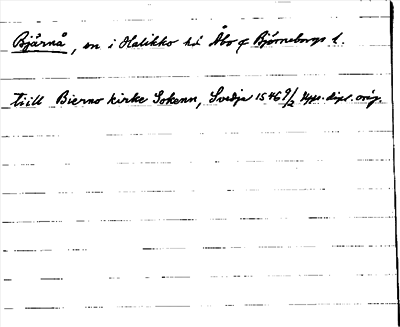 Bjärnå, sn i Halikko hd Åbo o Björneborgs l.
tiill Bierno kirke Sokenn, Svidja 1546 9/2 Upps. dipl. orig.